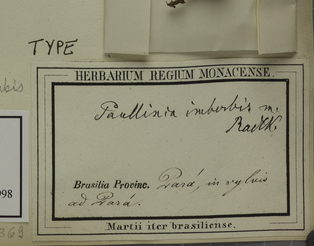 TYPE
HERBARIUM REGIUM MONACENSE.
Paullinia imberbis m.
Radlk.
Brasilia Provinc. Pará, in sylvis
ad Pará.
Martii iter brasiliense.
998
369